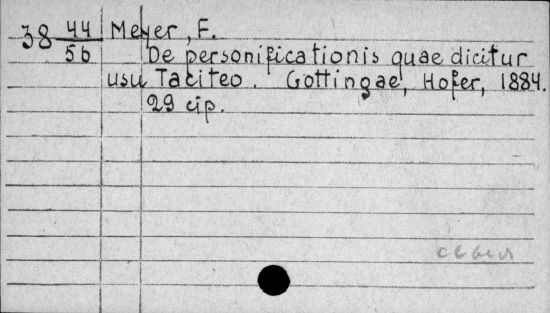 38 44/56 Meyer, F.
De personificationis quae dicitur
usu Taciteo. Gottingae, Hofer, 1884.
29 cip.